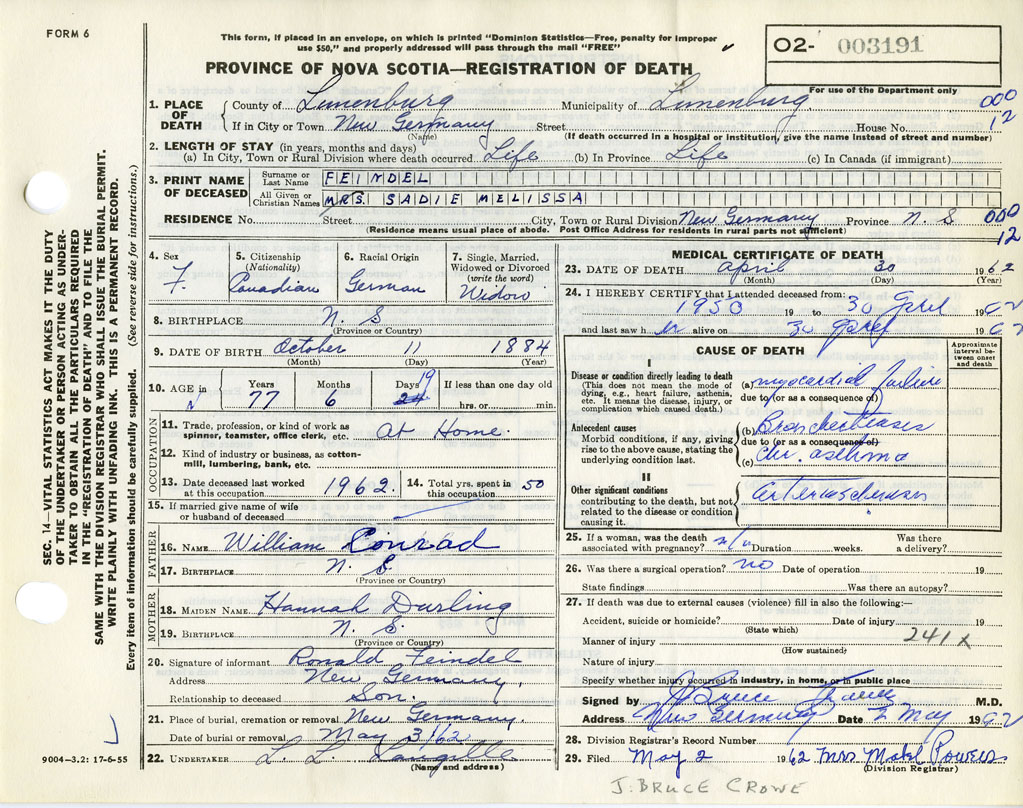 FORM 6
This form, if placed in an envelope, on which is printed "Dominion Statistics—Free, penalty for improper
use $50," and properly addressed will pass through the mail "FREE"
O2- 003191
PROVINCE OF NOVA SCOTIA—REGISTRATION OF DEATH
For use of the Department only
1. PLACE OF DEATH County of Lunenburg Municipality of Lunenburg 000
If in City or Town New Germany Street House No. 12
(Name) (If death occurred in a hospital or institution, give the name instead of street and number)
2. LENGTH OF STAY (in years, months and days)
(a) In City, Town or Rural Division where death occurred Life (b) In Province Life (c) In Canada (if immigrant)
3. PRINT NAME OF DECEASED Surname or Last Name FEINDEL
All Given or Christian Names MRS. SADIE MELISSA
RESIDENCE No. Street City, Town or Rural Division New Germany Province N. S 000
(Residence means usual place of abode. Post Office Address for residents in rural parts not sufficient) 12
4. Sex F.
5. Citizenship (Nationality) Canadian
6. Racial Origin German
7. Single, Married, Widowed or Divorced (write the word) Widow
8. BIRTHPLACE N. S
(Province or Country)
9. DATE OF BIRTH October 11 1884
(Month) (Day) (Year)
10. AGE in Years Months Days If less than one day old
77 6 19 24 hrs. or min.
OCCUPATION
11. Trade, profession, or kind of work as spinner, teamster, office clerk, etc. At Home.
12. Kind of industry or business, as cotton-mill, lumbering, bank, etc.
13. Date deceased last worked at this occupation 1962. 14. Total yrs. spent in this occupation 50
15. If married give name of wife or husband of deceased
FATHER
16. NAME William Conrad
17. BIRTHPLACE N. S
(Province or Country)
MOTHER
18. MAIDEN NAME Hannah Durling
19. BIRTHPLACE N. S.
(Province or Country)
20. Signature of informant Ronald Feindel
Address New Germany,
Relationship to deceased Son.
21. Place of burial, cremation or removal New Germany.
Date of burial or removal May 3/62
22. UNDERTAKER L. L. Langille
(Name and address)
MEDICAL CERTIFICATE OF DEATH
23. DATE OF DEATH April 30 1962
(Month) (Day) (Year)
24. I HEREBY CERTIFY that I attended deceased from:
1950 19 to 30 April 1962
and last saw h er alive on 30 April 1962
CAUSE OF DEATH
Approximate interval between onset and death
I
Disease or condition directly leading to death
(This does not mean the mode of dying, e.g., heart failure, asthenia, etc. It means the disease, injury, or complication which caused death.)
(a) myocardial failure
due to (or as a consequence of)
Antecedent causes
Morbid conditions, if any, giving rise to the above cause, stating the underlying condition last.
(b) Bronchectiases
due to (or as a consequence of)
(c) chr. asthma
II
Other significant conditions
contributing to the death, but not related to the disease or condition causing it.
25. If a woman, was the death associated with pregnancy? n/a Duration weeks. Was there a delivery?
26. Was there a surgical operation? no Date of operation 19
State findings Was there an autopsy?
27. If death was due to external causes (violence) fill in also the following:—
Accident, suicide or homicide? Date of injury 19
(State which)
Manner of injury 241x
(How sustained)
Nature of injury
Specify whether injury occurred in industry, in home, or in public place
Signed by J Bruce Crowe M.D.
Address New Germany Date 2 May 1962
28. Division Registrar's Record Number
29. Filed May 2 1962 Mrs Mabel Powers
(Division Registrar)
J. BRUCE CROWE
SEC. 14—VITAL STATISTICS ACT MAKES IT THE DUTY
OF THE UNDERTAKER OR PERSON ACTING AS UNDER-
TAKER TO OBTAIN ALL THE PARTICULARS REQUIRED
IN THE "REGISTRATION OF DEATH" AND TO FILE THE
SAME WITH THE DIVISION REGISTRAR WHO SHALL ISSUE THE BURIAL PERMIT.
WRITE PLAINLY WITH UNFADING INK. THIS IS A PERMANENT RECORD.
Every item of information should be carefully supplied. (See reverse side for instructions.)
9004—3.2: 17-6-55